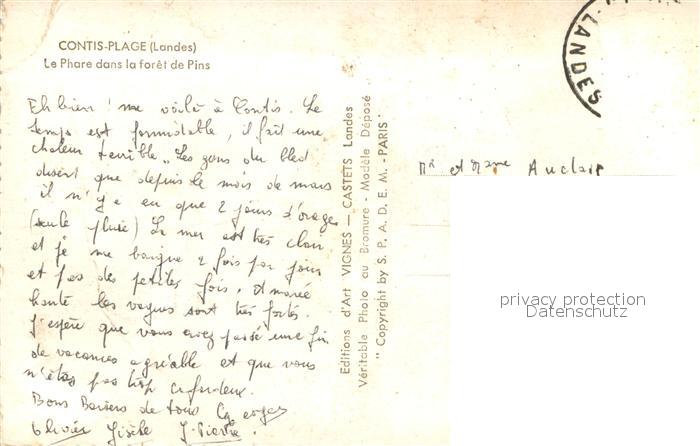 CONTIS-PLAGE (Landes)
Le Phare dans la forêt de Pins
Eh bien! me voilà à Contis. Le
temps est formidable, il fait une
chaleur terrible. Les gens du bled
disent que depuis le mois de mars
il n'y a eu que 2 jours d'orage
(seule pluie) La mer est très
et je me baigne 2 fois par jour
et pas des petites fois. A marée
haute les vagues sont très fortes.
J'espère que vous avez passé une fin
de vacances agréable et que vous
n'êtes pas trop cafardeux.
Bons Baisers de tous
Olivier Gisèle J. Pierre.
Editions d'Art VIGNES — CASTETS Landes
Véritable Photo au Bromure - Modèle Déposé
" Copyright by S. P. A. D. E. M. - PARIS "
LANDES
Mr et Mme Auclair
privacy protection
Datenschutz